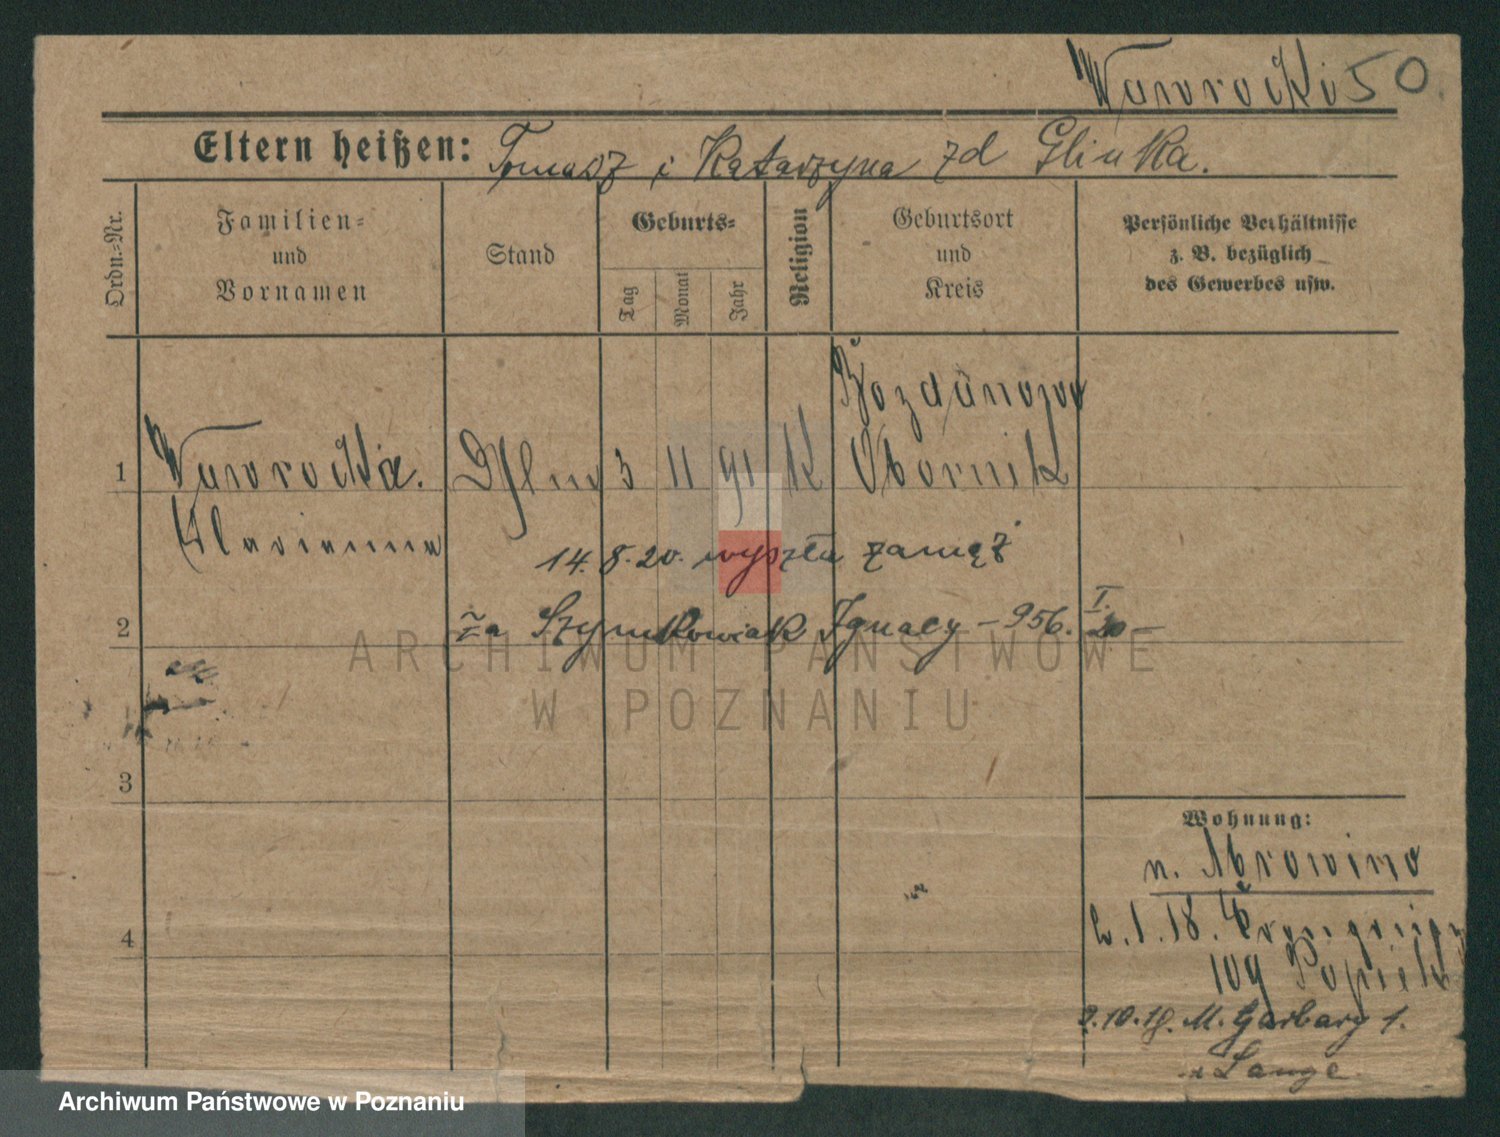 Wawrocki 50.
Eltern heißen: Tomasz i Katarzyna zd Glinka.
Ordn.-Nr.
Familien-
und
Vornamen
Stand
Geburts-
Tag
Monat
Jahr
Religion
Geburtsort
und
Kreis
Persönliche Verhältnisse
z. B. bezüglich
des Gewerbes usw.
1 Wawrocka. 3 11 91 K
Obornik
Marianna
14.8.20. wyszła zamęż
2 za Szymkowiak Ignacy – 956. I. 20 –
ARCHIWUM PAŃSTWOWE
W POZNANIU
3
Wohnung:
n. Mrowino
4
2.1.18.
109
2.10.18. M. Garbary 1.
Lange
Archiwum Państwowe w Poznaniu